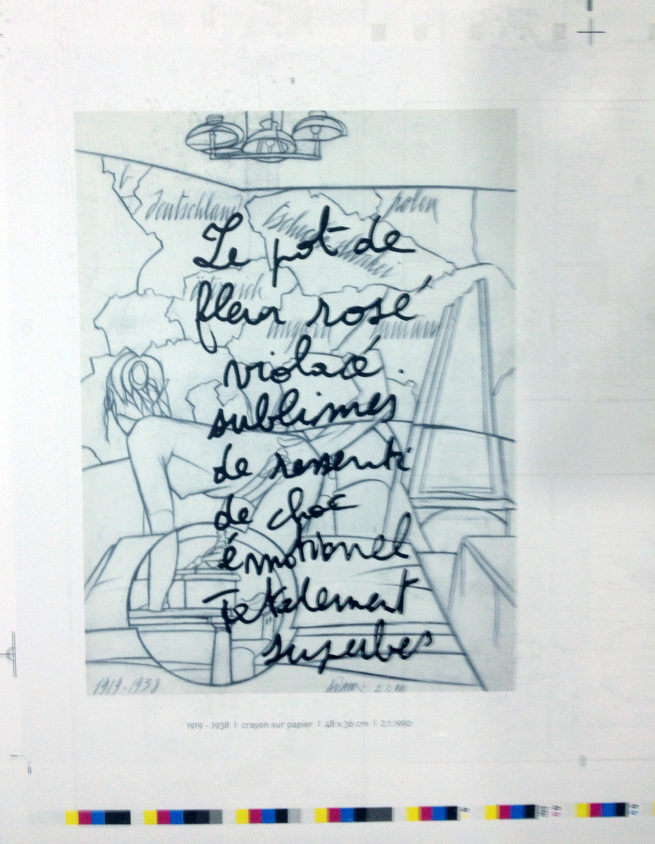 8
Deutschland
Polen
Le pot de
fleur rosé
violacé.
sublimes
de ressenti
de choc
émotionel
Totalement
superbes
1919-1938
1919 - 1938 | crayon sur papier | 48 x 36 cm | 2:1:1990.